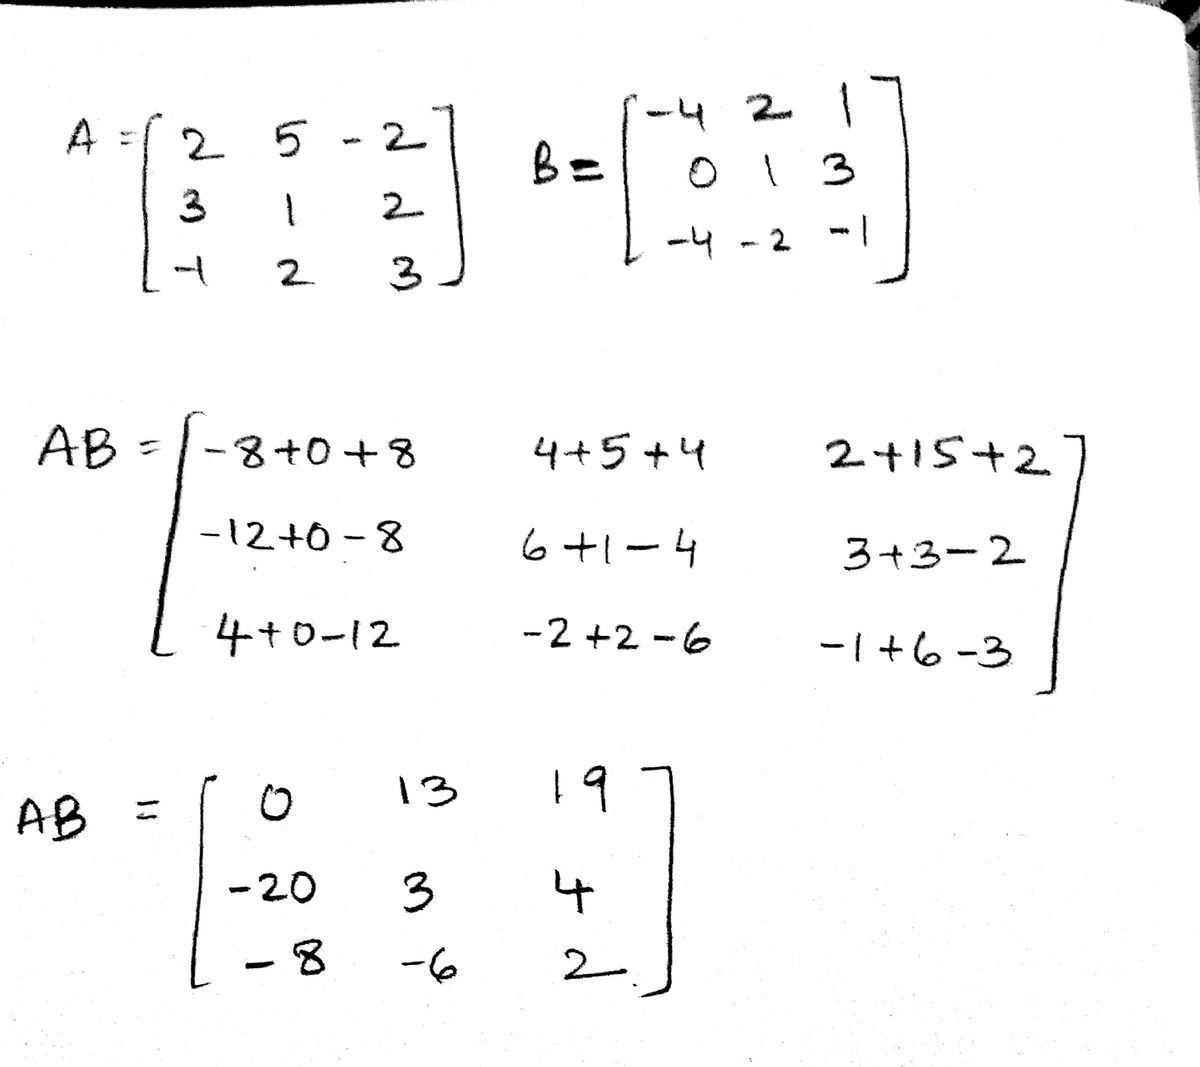 A = [ 2 5 -2 ] B = [ -4 2 1 ]
[ 3 1 2 ] [ 0 1 3 ]
[ -1 2 3 ] [ -4 -2 -1 ]
AB = [ -8+0+8 4+5+4 2+15+2 ]
[ -12+0-8 6+1-4 3+3-2 ]
[ 4+0-12 -2+2-6 -1+6-3 ]
AB = [ 0 13 19 ]
[ -20 3 4 ]
[ -8 -6 2 ]